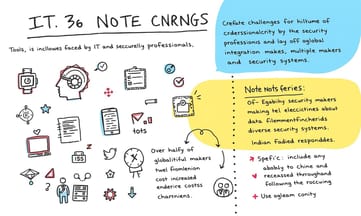 I.T. 36 NOTE CNRNGS
Tools, is incllowes faced by IT and seccurelly professionals.
Crefate challenges for hiltume of
crderssionalcrity by the security
professions and lay off aglobal
integration makes, multiple makers
and security systems.
Note Nots feries:
Of- Egabihy security makers
making tel elecctinies about
data filemmentfincherids
diverse security systems.
Indian Fadied responddes.
Spefic: include any
ababty to china and
receassed throughand
following the roccuing
+ Use ogleam conity
tots
ISS
Over halfy of
globalitiful makers
twel fiomlenion
cost increased
enderice costss
chartniens.